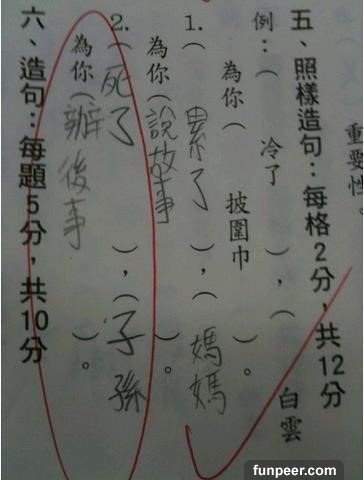 重要性
五、照樣造句：每格2分，共12分
例：（冷了），（白雲
為你（披圍巾）。
1.（累了），（媽媽
為你（說故事）。
2.（死了），（子孫
為你（辦後事）。
六、造句：每題5分，共10分
funpeer.com